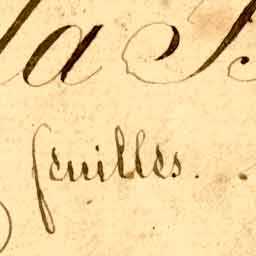 la
feuilles.